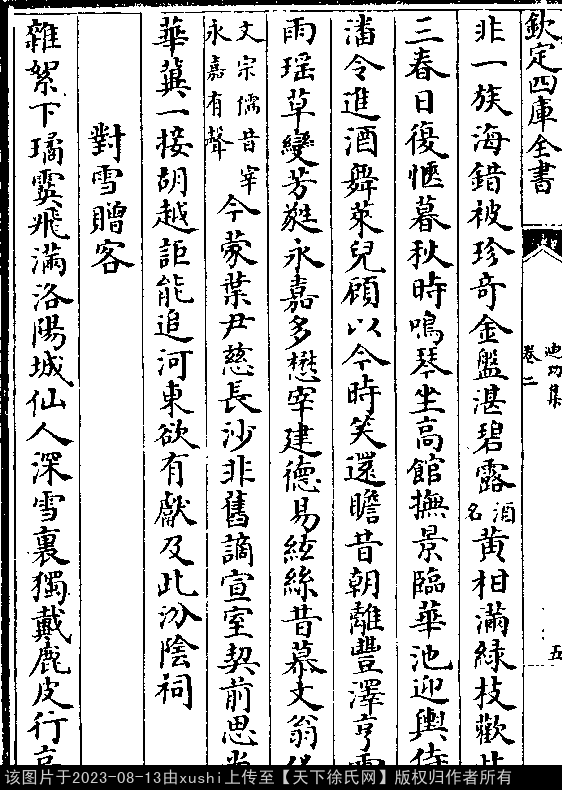 欽定四庫全書
迪功集
卷二
五
非一族海錯被珍奇金盤湛碧露酒名黄柑滿綠枝歡
三春日復愜暮秋時鳴琴坐高館撫景臨華池迎輿侍
潘令進酒舞萊兒顧以今時笑還瞻昔朝離豐澤亨
雨瑶草變芳蕤永嘉多懋宰建德易絃絲昔慕文翁
文宗儒昔宰永嘉有聲今蒙葉尹慈長沙非舊謫宣室契前思
華蓂一接胡越詎能追河東欲有獻及此汾陰祠
對雪贈客
雜絮下璚霙飛滿洛陽城仙人深雪裏獨戴鹿皮行
该图片于2023-08-13由xushi上传至【天下徐氏网】版权归作者所有